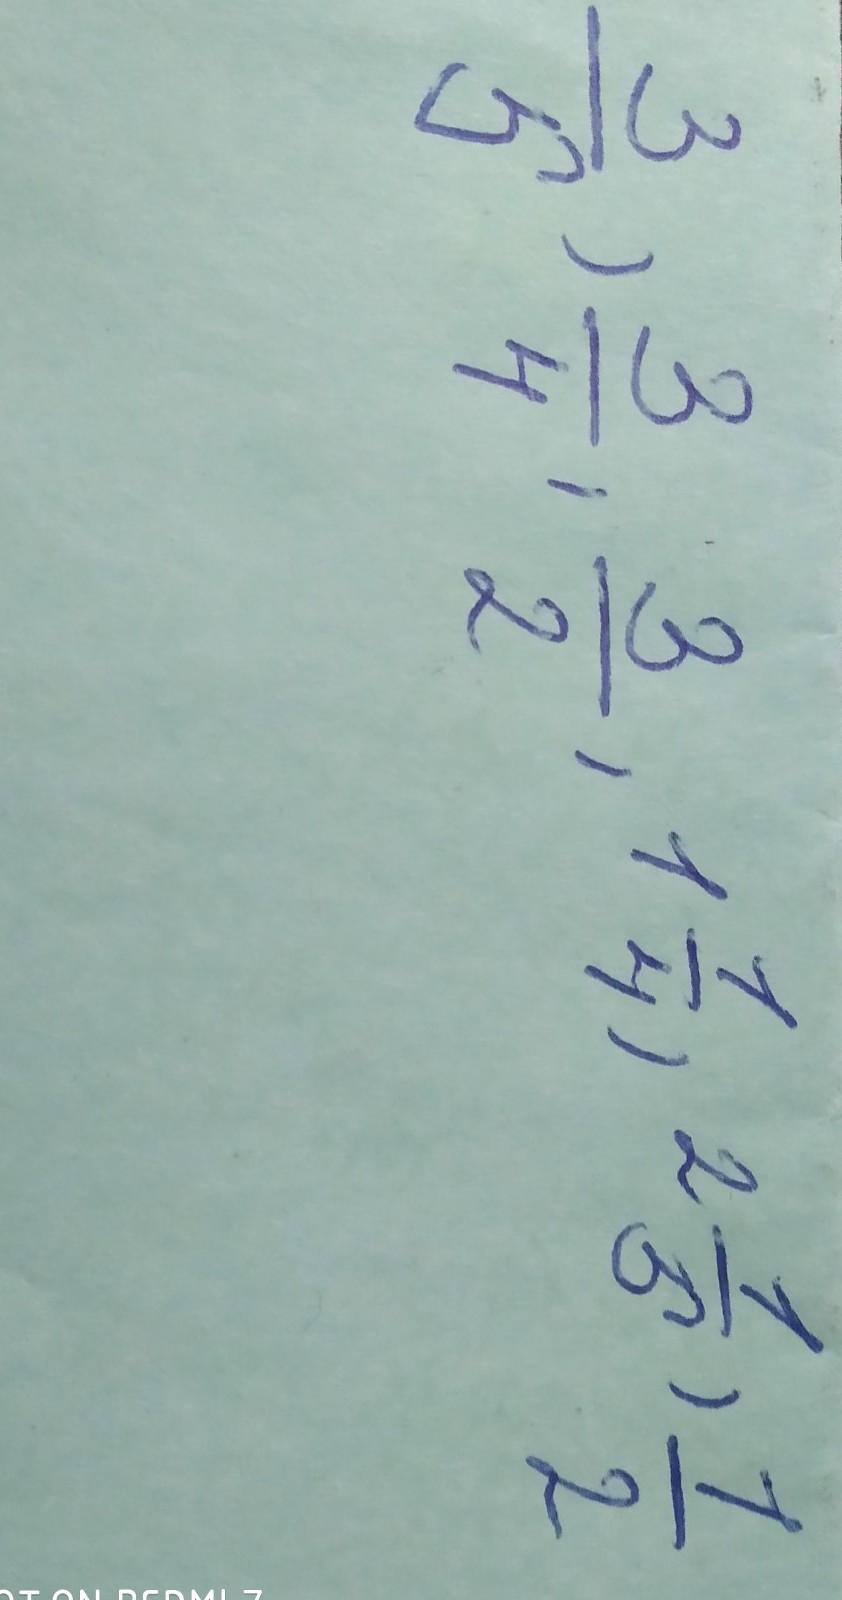 3/5, 3/4, 3/2, 1 1/4, 2 1/5, 1/2
OT ON REDMI 7